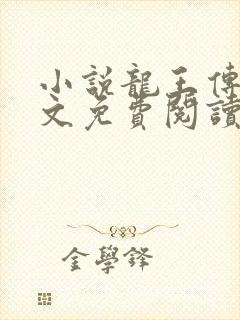 小說龍王傳
文免費閱讀
金學鋒